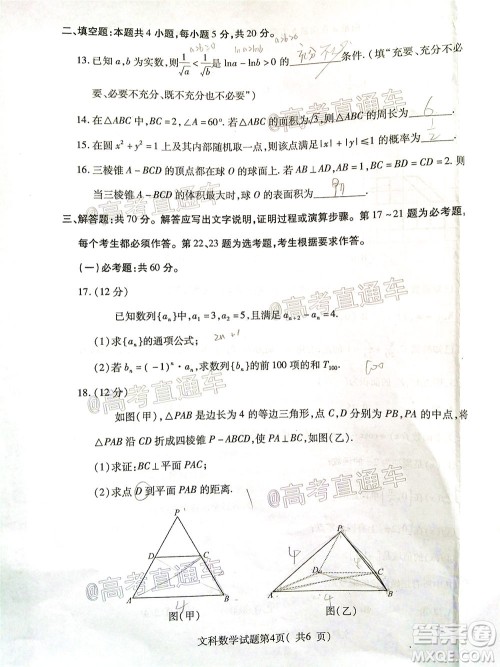 二、填空题:本题共4小题,每小题5分,共20分。
a>b>0 lna>lnb a>b>0
13. 已知a,b为实数,则1/√a<1/√b是lna-lnb>0的 充分不必 条件.(填“充要、充分不必
要、必要不充分、既不充分也不必要”)
14. 在△ABC中,BC=2,∠A=60°. 若△ABC的面积为√3,则△ABC的周长为 6 .
15. 在圆x²+y²=1及其内部随机取一点,则该点满足|x|+|y|≤1的概率为 .
16. 三棱锥A-BCD的顶点都在球O的球面上. 若AB⊥AD,AB=BC=CD=BD=2,则
当三棱锥A-BCD的体积最大时,球O的表面积为 .
三、解答题:共70分。解答应写出文字说明,证明过程或演算步骤。第17~21题为必考题,
每个考生都必须作答。第22、23题为选考题,考生根据要求作答。
(一)必考题:共60分。
@高考直通车
17. (12分)
已知数列{aₙ}中,a₁=3,a₂=5,aₙ₊₂-aₙ=4.
(1)求{aₙ}的通项公式; 2n+1
(2)若bₙ=(-1)ⁿ·aₙ,求数列{bₙ}的前100项的和T₁₀₀. 100
18. (12分)
@高考直通车
如图(甲),△PAB是边长为4的等边三角形,C,D分别为PB,PA的中点,将
△PAB沿CD折成四棱锥P-ABCD,使PC⊥AC,如图(乙).
(1)求证:BC⊥平面PAC;
(2)求点D到平面PAB的距离.
@高考直通车
P
D C
A B
4
图(甲)
P
4 4
D C
A B
4
图(乙)
@高考直通车
文科数学试题第4页( 共6 页)
答案圈